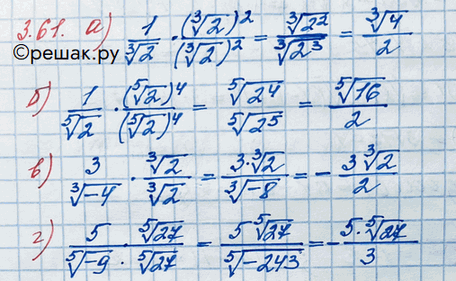 3.61. а) 1/∛2 · (∛2)²/(∛2)² = ∛2²/∛2³ = ∛4/2
©решак.ру
б) 1/⁵√2 · (⁵√2)⁴/(⁵√2)⁴ = ⁵√2⁴/⁵√2⁵ = ⁵√16/2
в) 3/∛-4 · ∛2/∛2 = 3·∛2/∛-8 = - 3∛2/2
г) 5/⁵√-9 · ⁵√27/⁵√27 = 5⁵√27/⁵√-243 = - 5·⁵√27/3